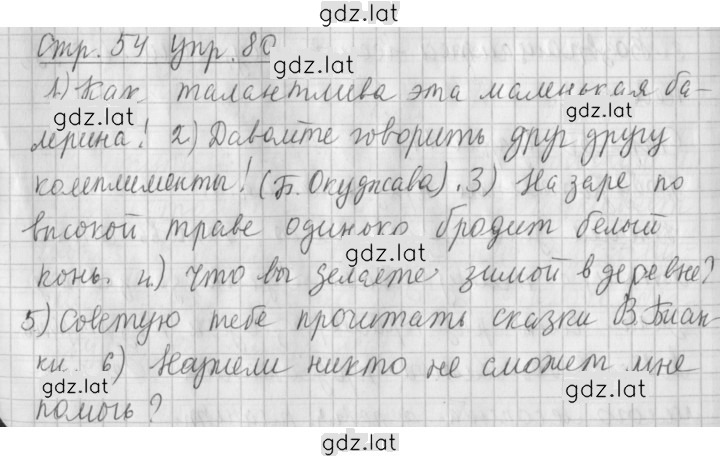 gdz.lat
Стр. 54 упр. 8С
gdz.lat
1.) Как талантлива эта маленькая ба-
gdz.lat gdz.lat
лерина! 2) Давайте говорить друг другу
комплименты! (Б. Окуджава). 3) На заре по
высокой траве одиноко бродит белый
gdz.lat
конь. 4.) Что вы делаете зимой в деревне?
5) Советую тебе прочитать сказки В. Биан-
ки. 6) Неужели никто не сможет мне
gdz.lat gdz.lat
помочь?
gdz.lat